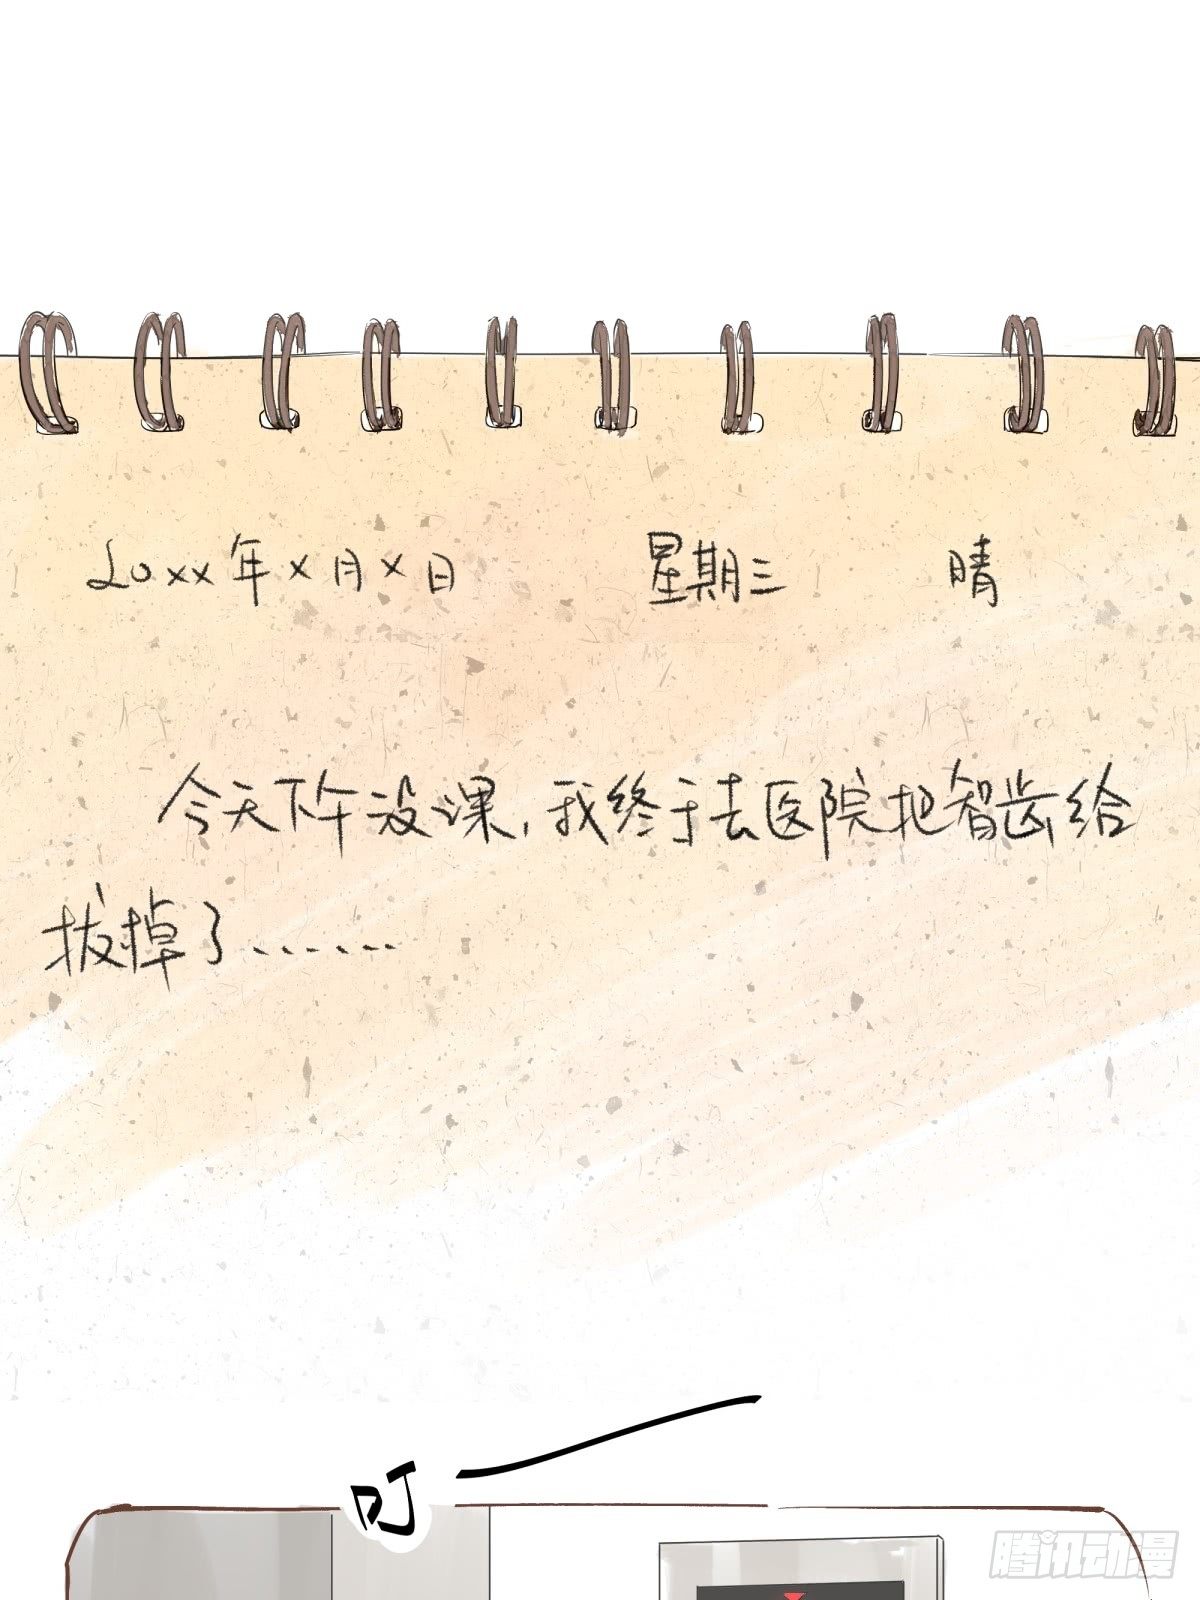 20xx年x月x日 星期三 晴
今天下午没课，我终于去医院把智齿给
拔掉了……
叮—
腾讯动漫